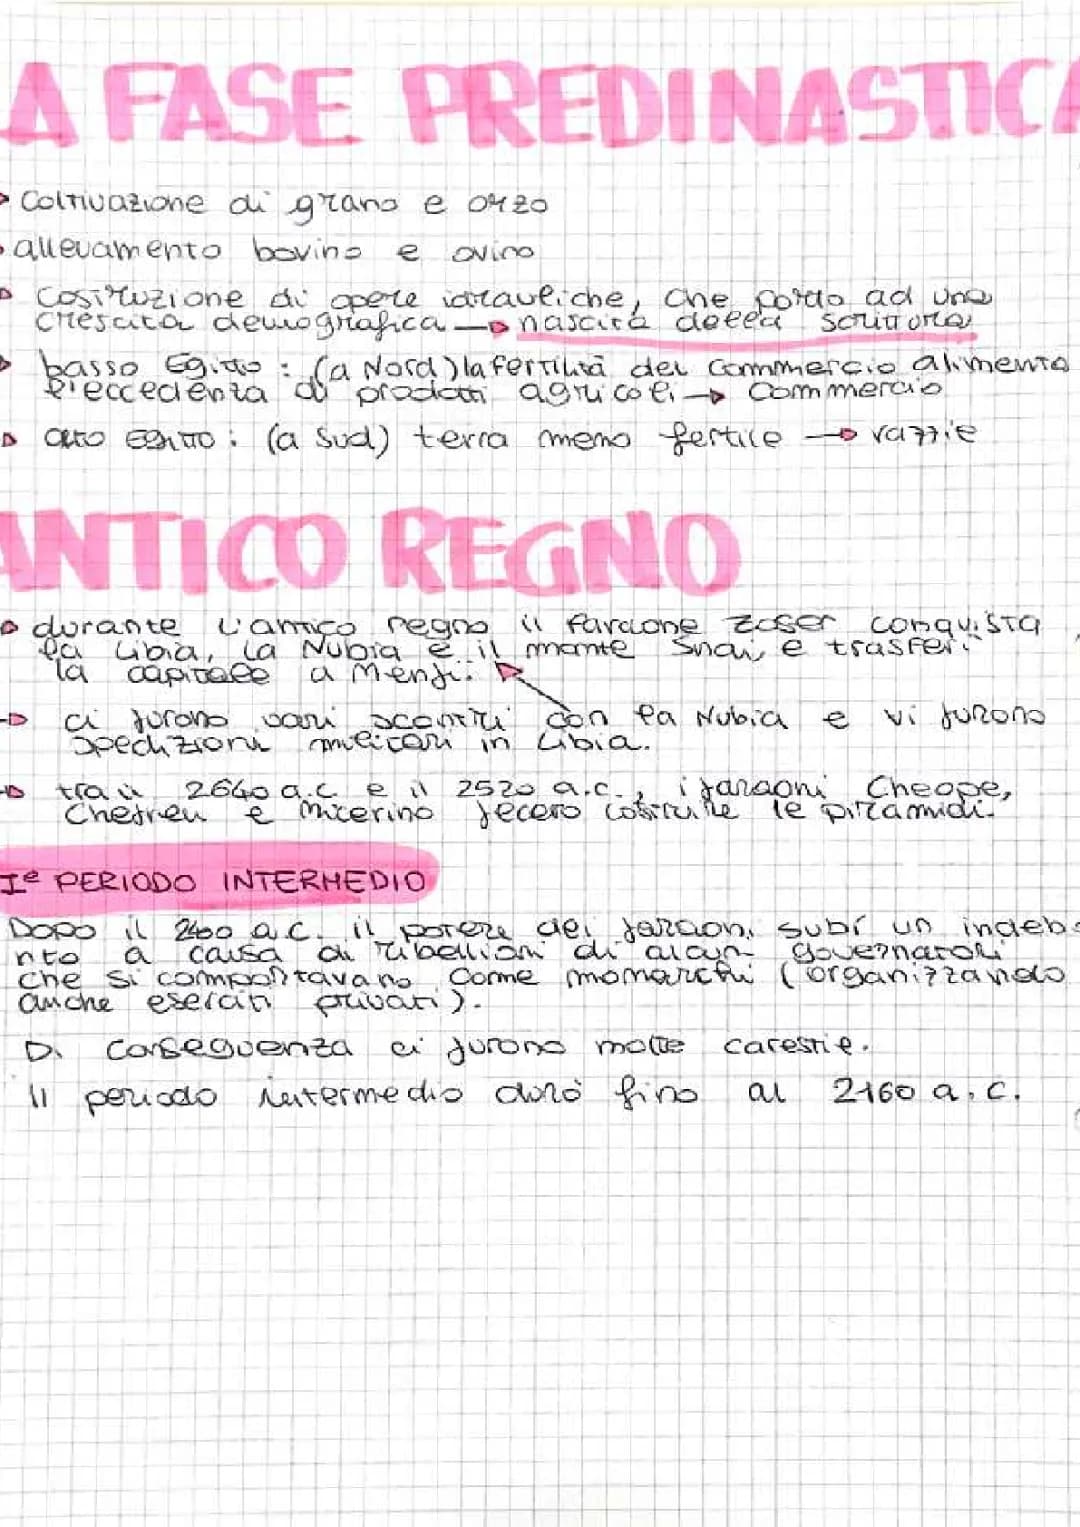 A FASE PREDINASTICA
Coltivazione di grano e orzo
allevamento bovino e ovino
Costruzione di opere idrauliche, che portò ad una
crescita demografica → nascita della scrittura
basso Egitto: (a Nord) la fertilità del commercio alimentò
l'eccedenza di prodotti agricoli → Commercio
alto Egitto: (a Sud) terra meno fertile → razzie
ANTICO REGNO
durante l'antico regno il faraone Zoser conquistà
la Libia, la Nubia e il monte Sinai, e trasferì
la capitale a Menfi.
ci furono vari scontri con la Nubia e vi furono
spedizioni militari in Libia.
tra il 2640 a.c e il 2520 a.c., i faraoni Cheope,
Chefren e Micerino fecero costruire le piramidi.
Iº PERIODO INTERMEDIO
Dopo il 2400 a.c. il potere dei faraoni subì un indebo
nto a causa di ribellioni di alcuni governatori
che si comportavano come monarchi (organizzando
anche eserciti privati).
Di conseguenza ci furono molte carestie.
Il periodo intermedio durò fino al 2160 a.c.